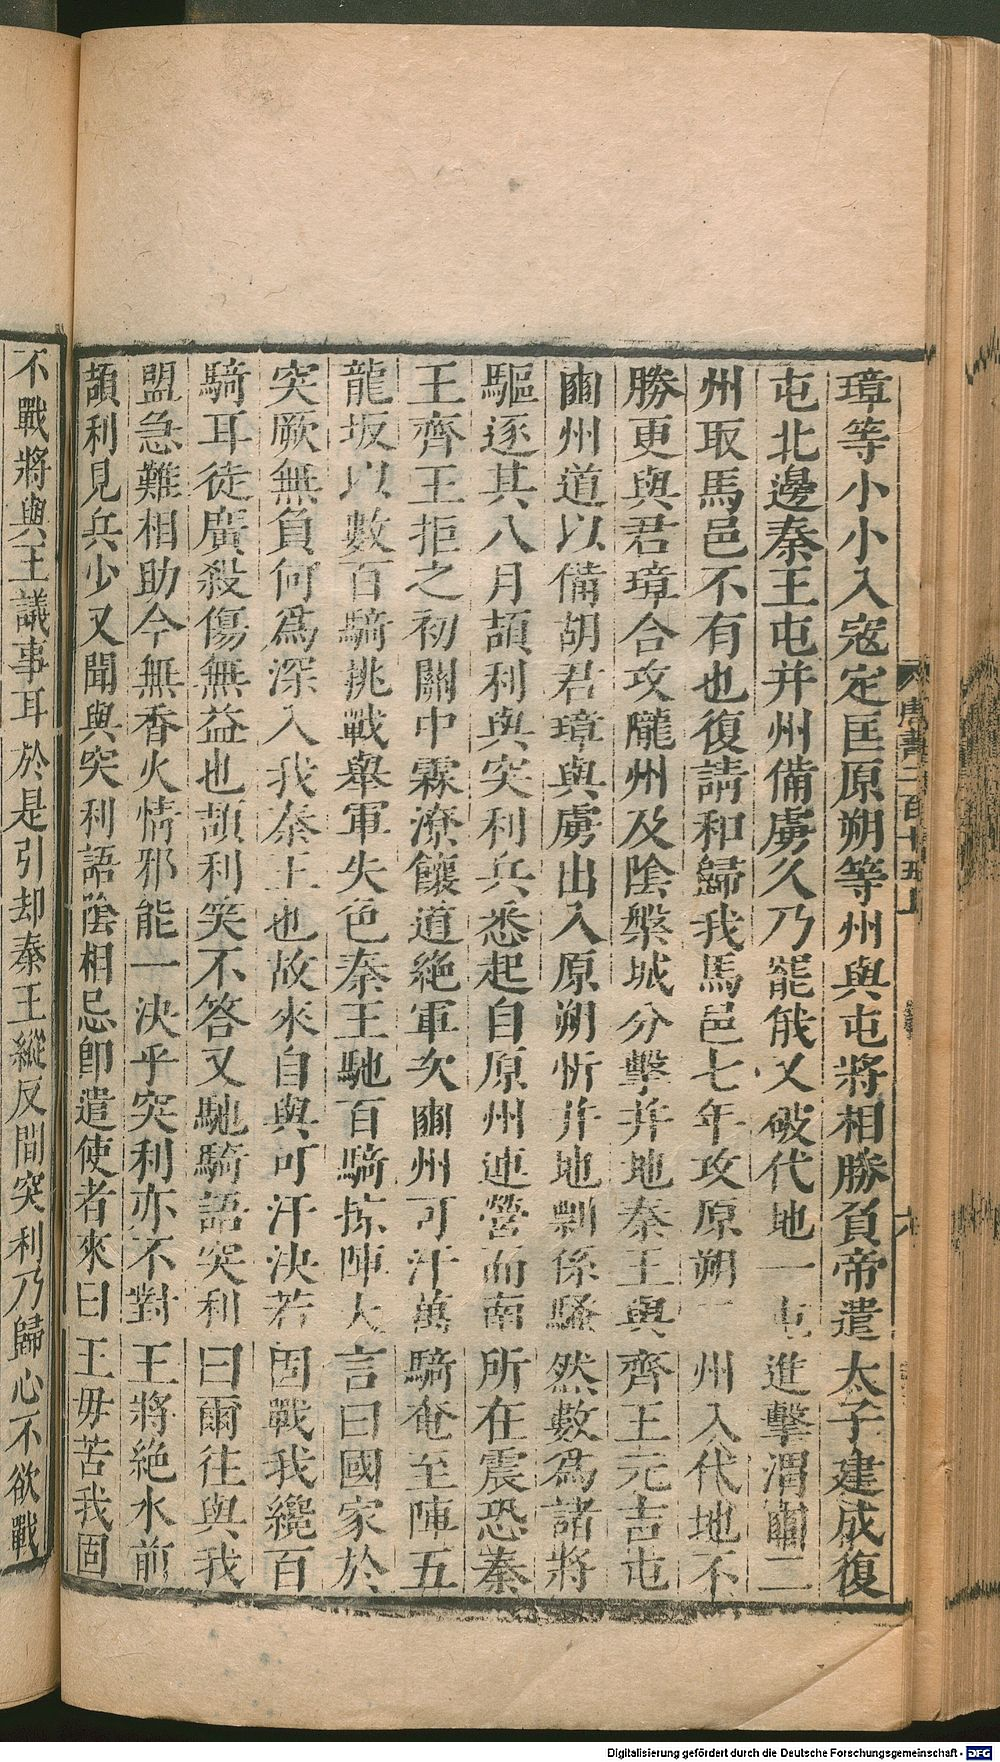 璋等小小入寇定匡原朔等州與屯將相勝負帝遣太子建成復
屯北邊秦王屯并州備虜久乃罷俄又破代地一屯進擊渭豳二
州取馬邑不有也復請和歸我馬邑七年攻原朔二州入代地不
勝更與君璋合攻隴州及陰槃城分擊并地秦王與齊王元吉屯
豳州道以備胡君璋與虜出入原朔忻并地剽係騷然數爲諸將
驅逐其八月頡利與突利兵悉起自原州連營而南所在震恐秦
王齊王拒之初關中霖潦饟道絕軍次豳州可汗萬騎奄至陣五
龍坂以數百騎挑戰舉軍失色秦王馳百騎掠陣大言曰國家於
突厥無負何爲深入我秦王也故來自與可汗決若固戰我纔百
騎耳徒廣殺傷無益也頡利笑不答又馳騎語突利曰爾往與我
盟急難相助今無香火情邪能一決乎突利亦不對王將絕水前
頡利見兵少又聞與突利語陰相忌卽遣使者來曰王毋苦我固
不戰將與王議事耳於是引却秦王縱反間突利乃歸心不欲戰
唐書二百十五上
六
Digitalisierung gefördert durch die Deutsche Forschungsgemeinschaft - DFG